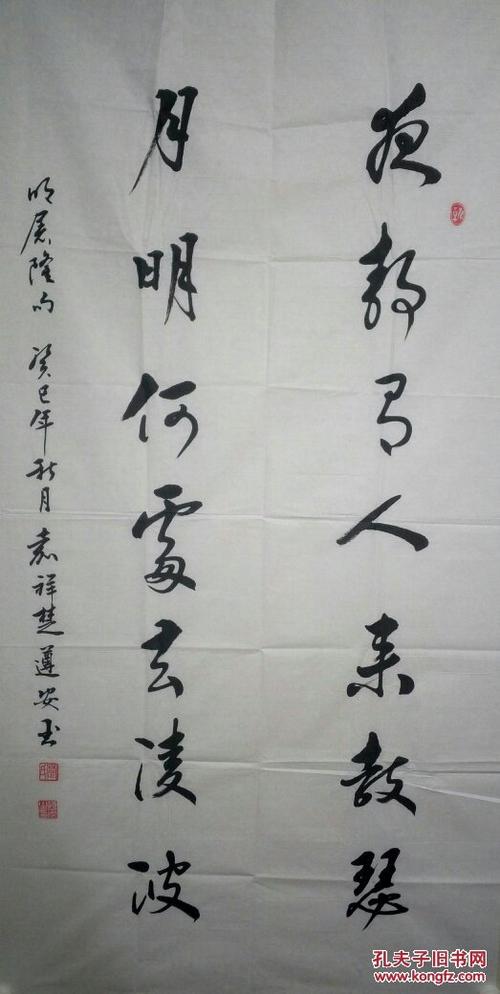 夜静有人来鼓瑟
月明何處去凌波
明屠隆句 癸巳年秋月 嘉祥楚遵安书
孔夫子旧书网
www.kongfz.com